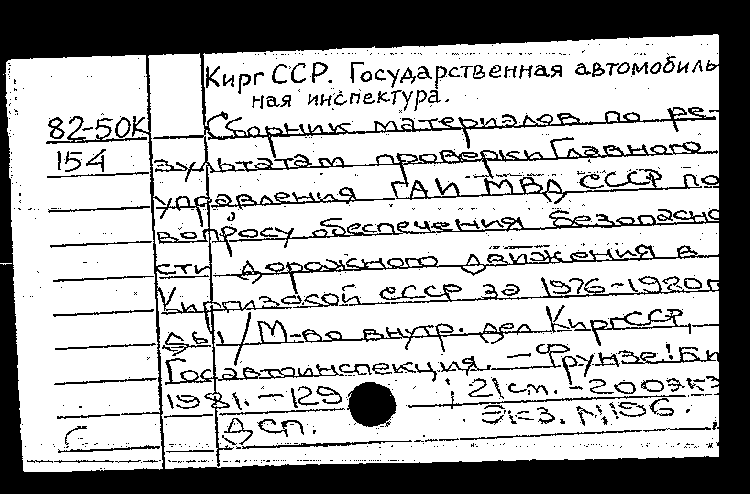 Кирг ССР. Государственная автомобиль-
ная инспектура.
82-50К Сборник материалов по ре-
154 зультатам проверки Главного
управления ГАИ МВД СССР по
вопросу обеспечения безопасно
сти дорожного движения в
Киргизской ССР за 1976-1980г
ды / М-во внутр. дел КиргССР,
Госавтоинспекция. - Фрунзе: Б.и
1981. - 129 ; 21 см. - 200 экз
ДСП. Экз. N196.
С